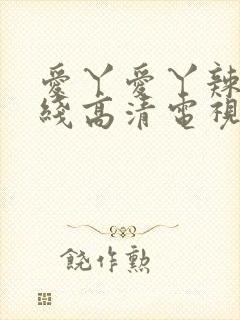 愛丫愛丫辣
綫高清電視
饒作勲